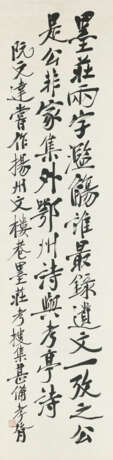 墨莊兩字濫觴誰最錄遺文一攷之公
是公非家集外鄂州詩與考亭詩
阮元達嘗作揚州文樓巷墨莊考搜集甚備孝胥